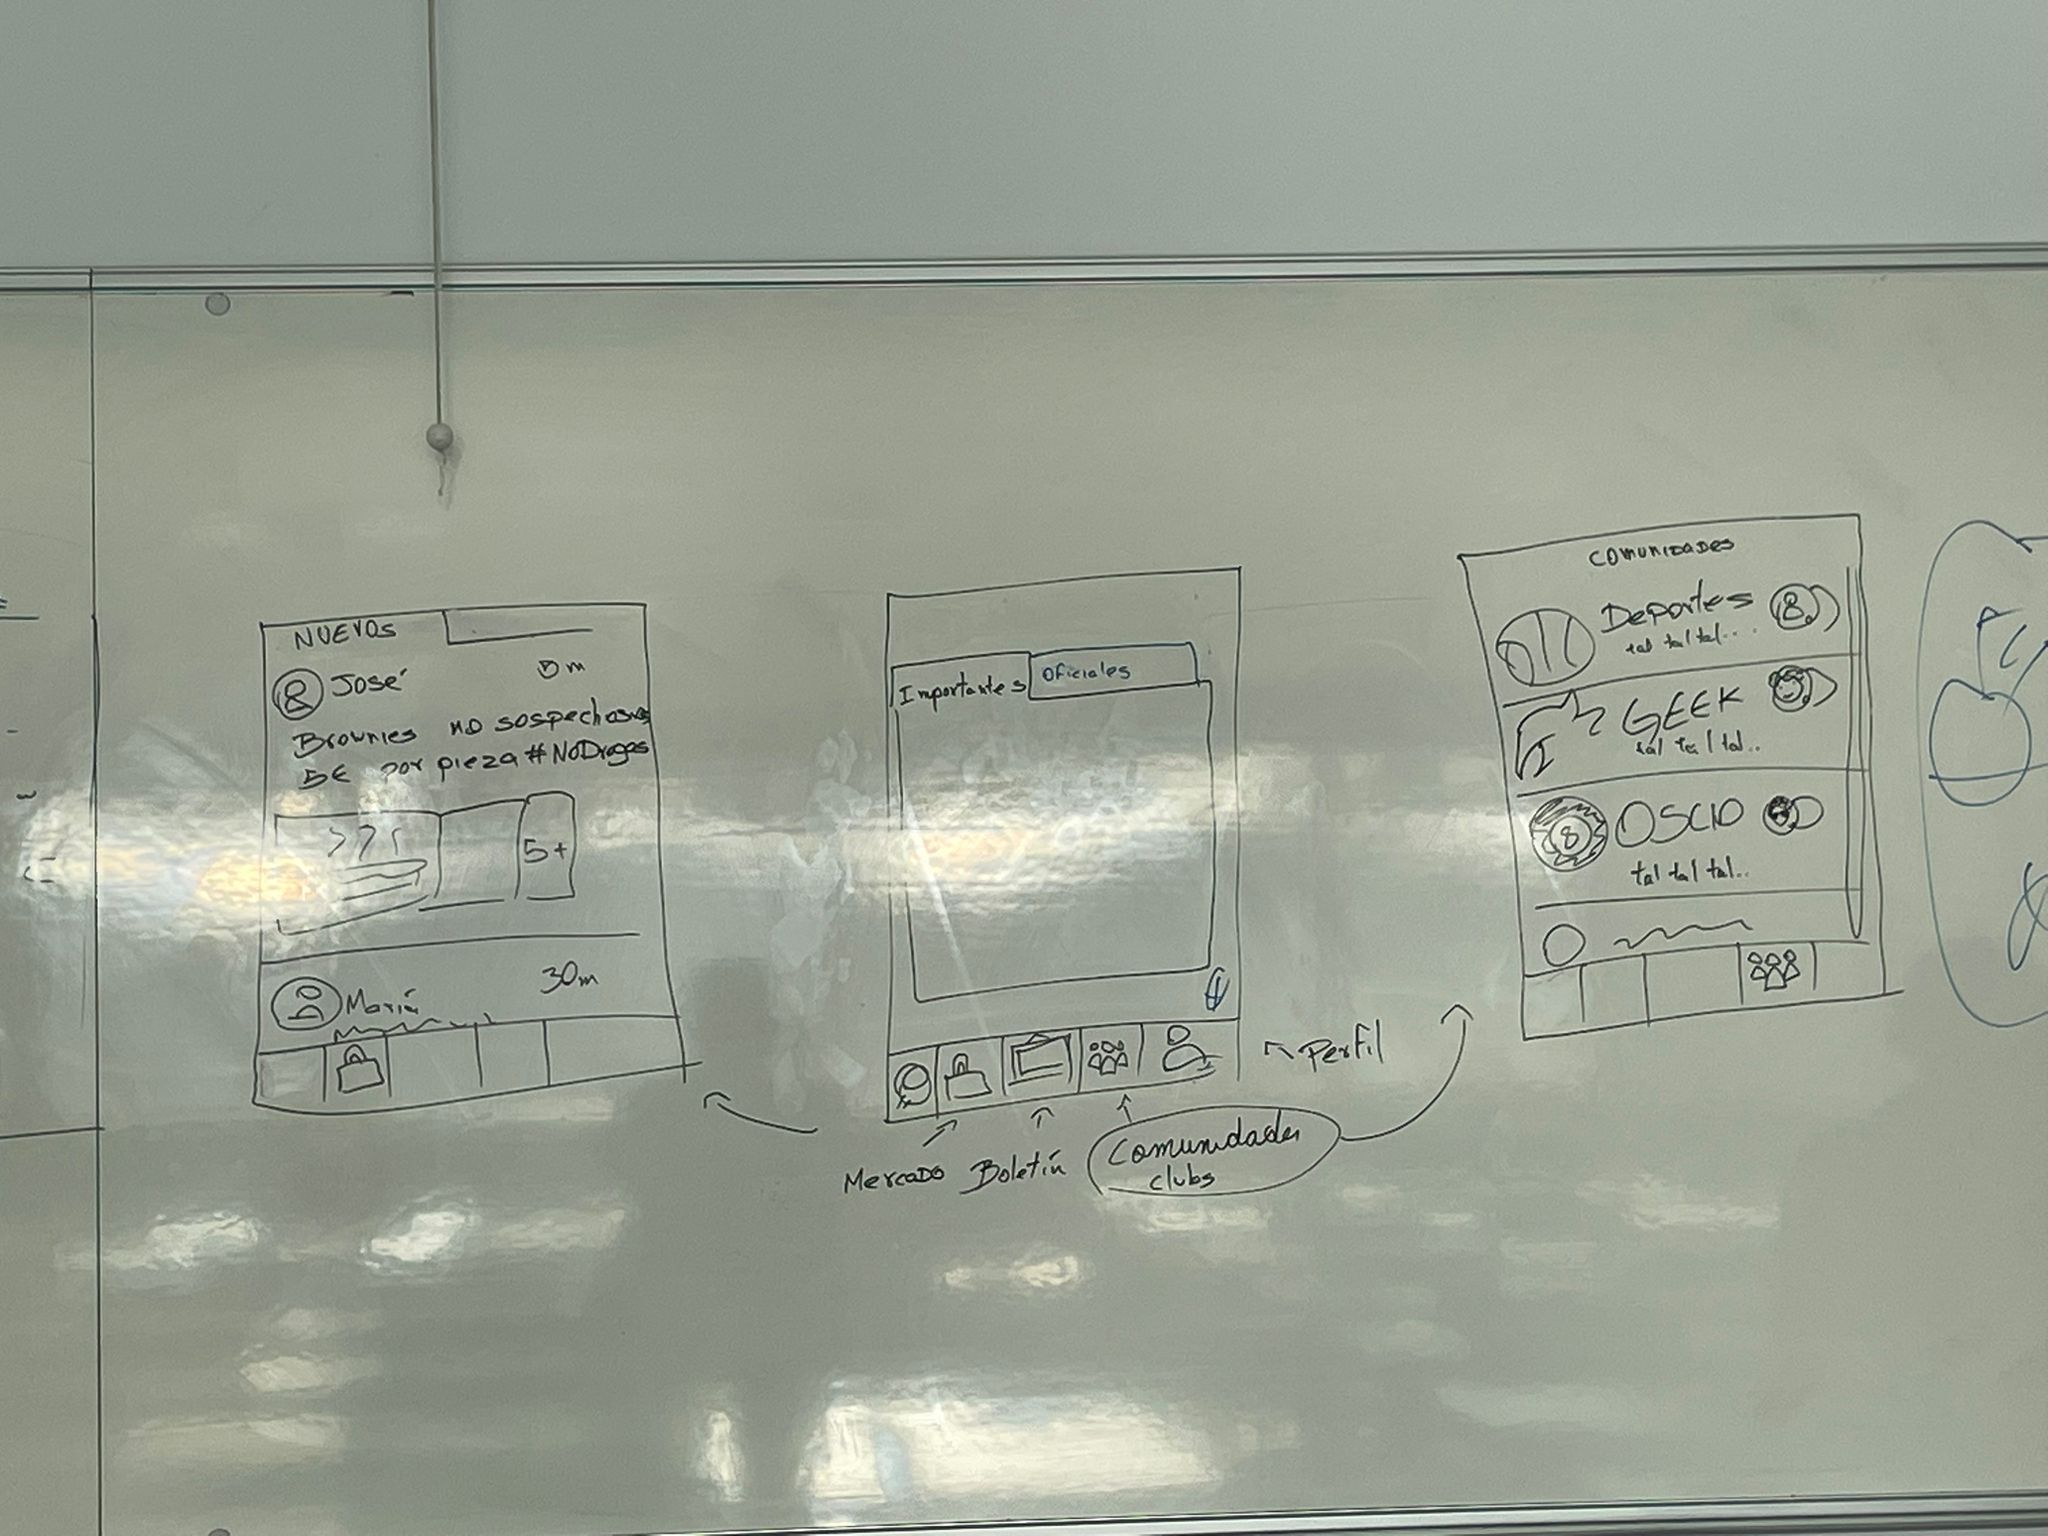 NUEVOS
José
5m
Brownies no sospechosos
5€ por pieza #NoDrogas
5+
María
30m
Importantes
Oficiales
Perfil
Mercado
Boletín
Comunidades
clubs
COMUNIDADES
Deportes
tal tal tal...
GEEK
tal tal tal..
OSCIO
tal tal tal..